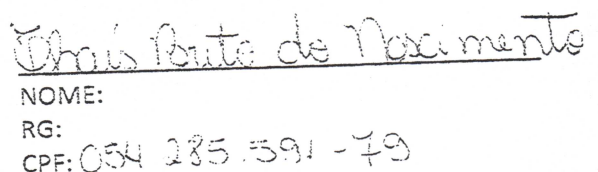 Thaís Brito do Nascimento
NOME:
RG:
CPF: 054 285.591-79